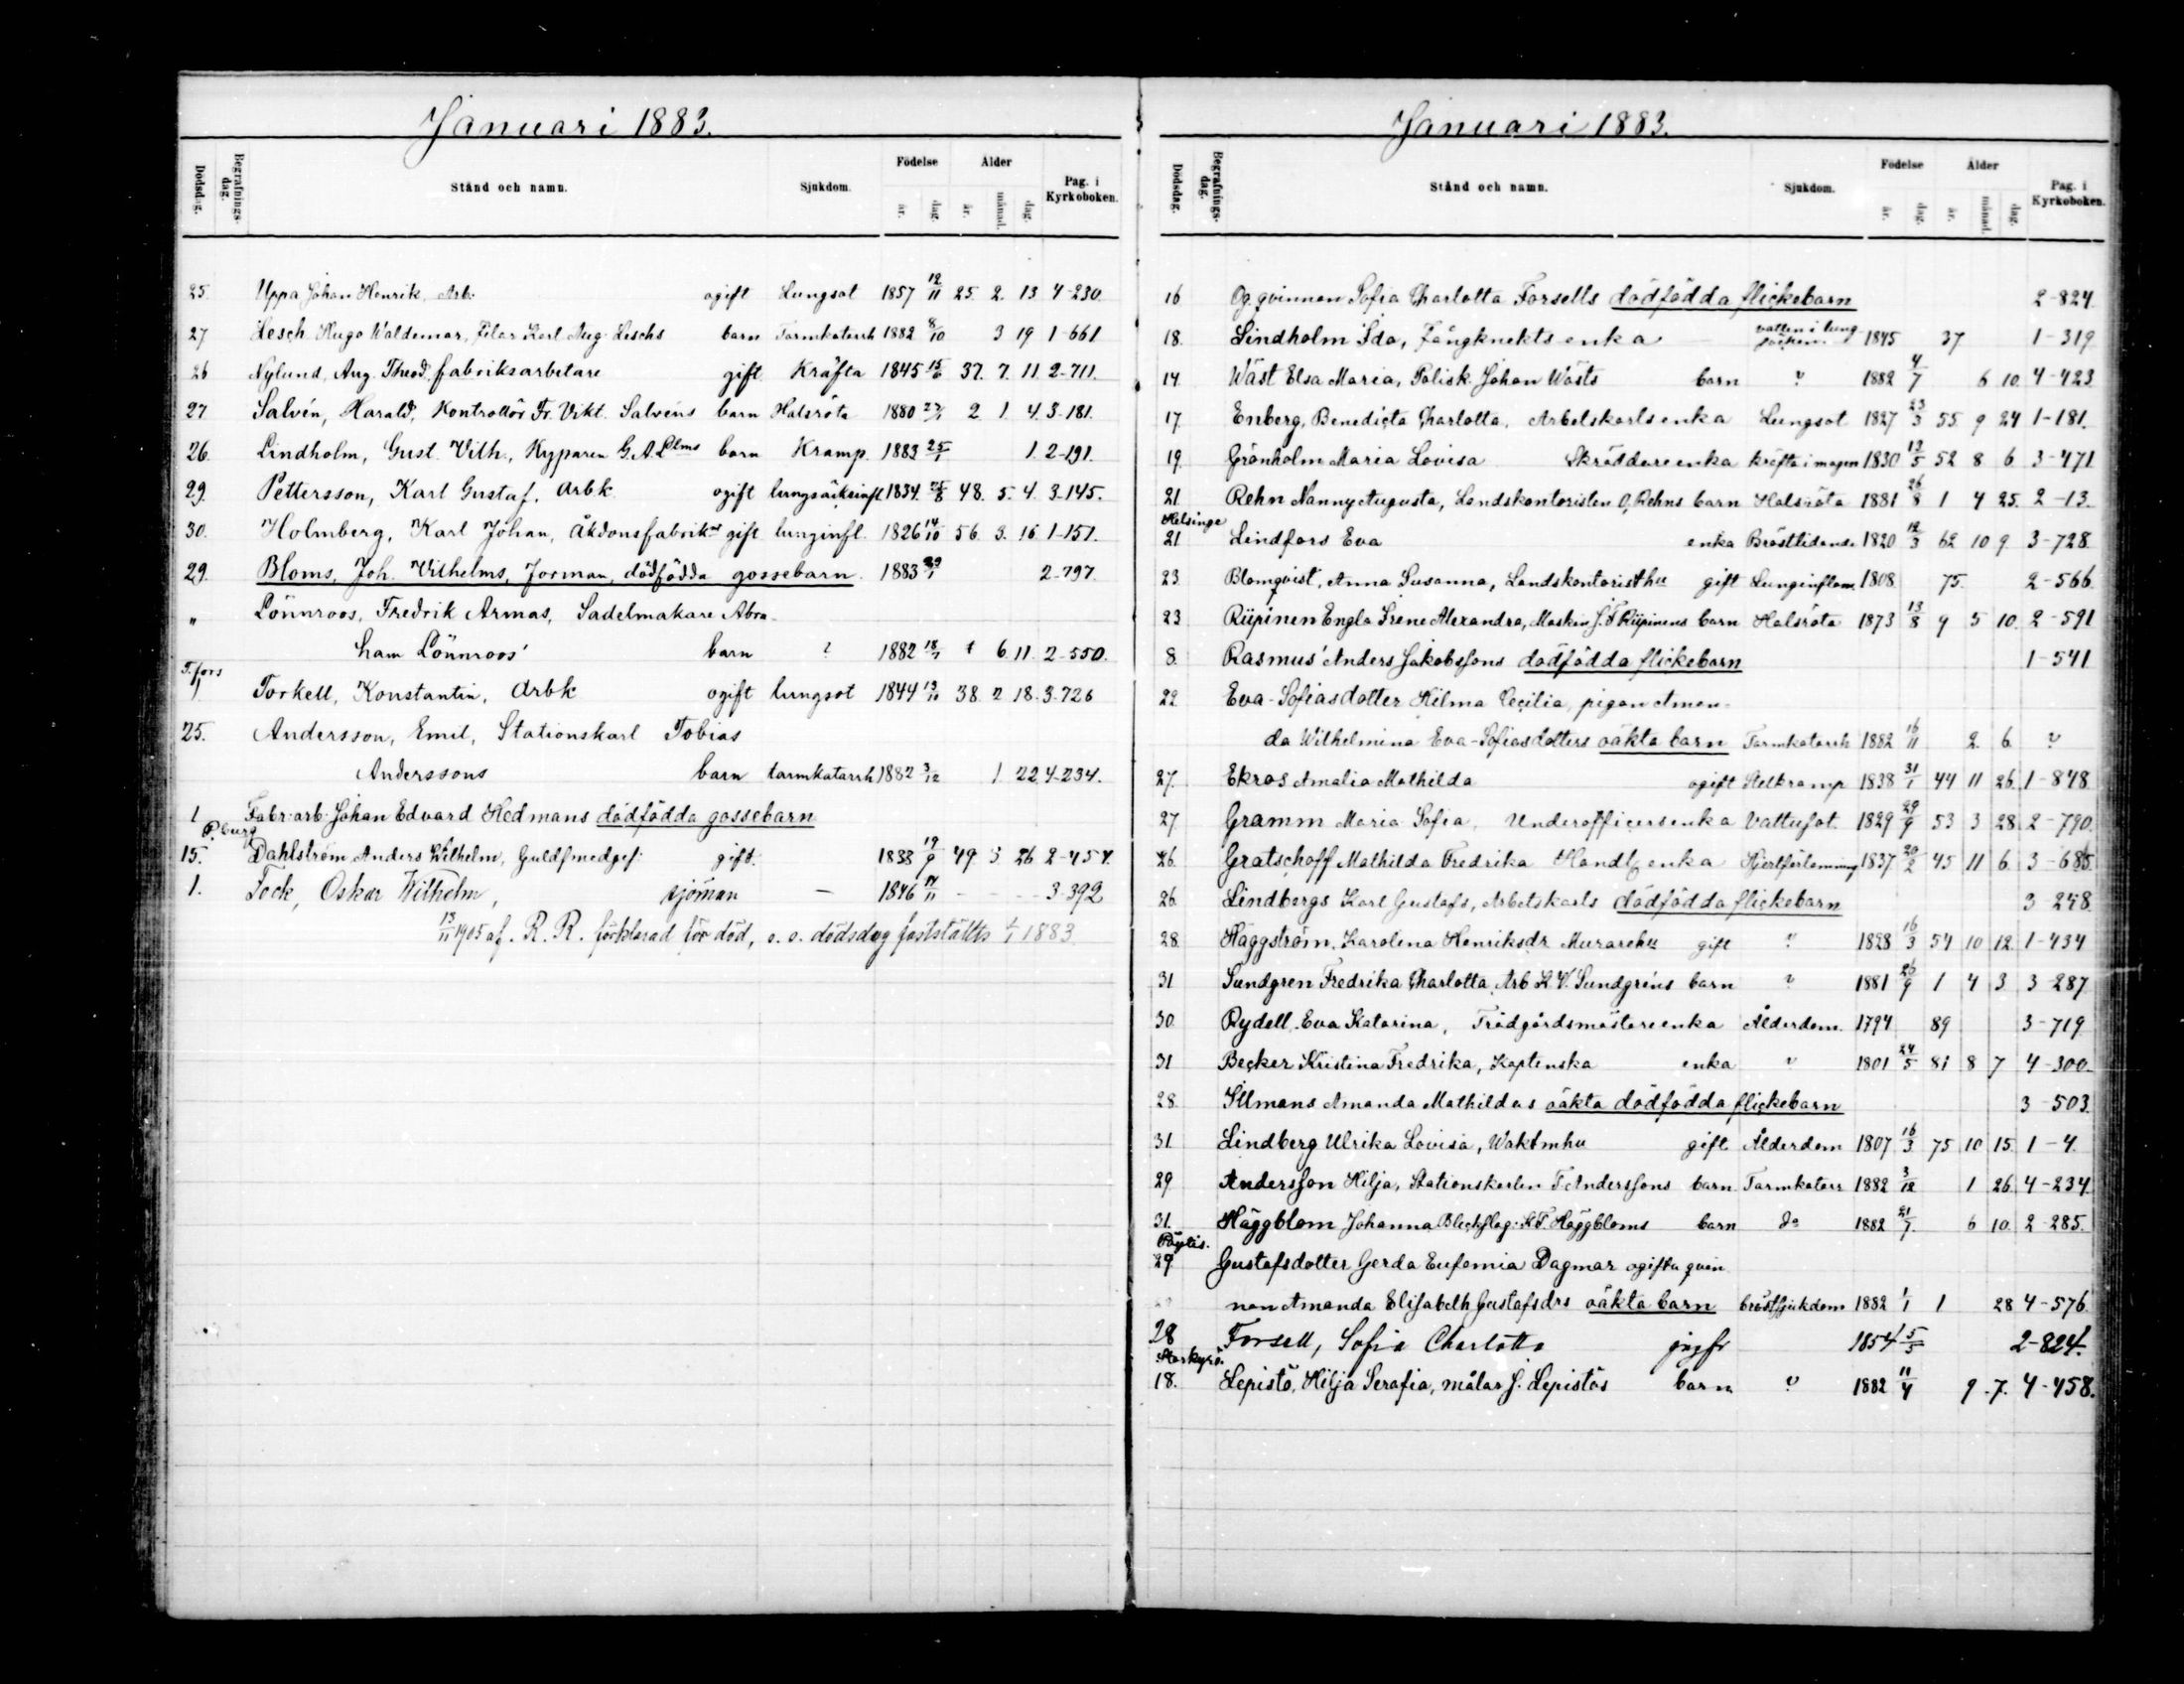 Januari 1883.
Dödsdag. Begrafnings-dag. Stånd och namn. Sjukdom. Födelse år. dag. Ålder år. månad. dag. Pag. i Kyrkoboken.
25. Uppa Johan Henrik, Arb. ogift Lungsot 1857 12/11 25. 2. 13 4-230.
27 Lesch Hugo Waldemar, Karl Aug. Leschs barn Tarmkatarrh 1882 8/10 3 19 1-661
26 Nylund, Aug. Theod. fabriksarbetare gift Kräfta 1845 15/6 37. 7. 11. 2-711.
27 Salvén, Harald, Kontrollör Fr. Vikt. Salvéns barn Halsröta 1880 27/1 2 1. 4. 3-181.
26. Lindholm, Gust. Vilh., Kyparen G. A. Llms barn Kramp. 1883 25/1 1. 2-191.
29. Pettersson, Karl Gustaf, Arbk. ogift lungsäcksinfl. 1834 25/8 48. 5. 4. 3-145.
30. Holmberg, Karl Johan, Åkdonsfabrik gift lunginfl. 1826 14/10 56 3. 16. 1-151.
29. Bloms, Joh. Vilhelms, Jorman, dödfödda gossebarn. 1883 29/1 2-797.
" Lönnroos, Fredrik Armas, Sadelmakare Abra-
ham Lönnroos' barn ? 1882 18/7 6. 11. 2-550.
T.fors
1 Torkell, Konstantin, Arbk ogift lungsot 1844 13/10 38. 2 18. 3-726
25. Andersson, Emil, Stationskarl Tobias
Anderssons barn tarmkatarrh 1882 3/12 1 22 4-234.
1 Fabr: arb: Johan Edvard Hedmans dödfödda gossebarn
P.burg
15. Dahlström Anders Wilhelm, Guldsmedges: gift. 1833 19/9 49 3 26 2-454.
1. Tock, Oskar Wilhelm, sjöman — 1846 14/11 - - - 3-392
13/11 1905 af. R. R. förklarad för död, o. s. dödsdag fastställts 1/1 1883.
Januari 1883.
Dödsdag. Begrafnings-dag. Stånd och namn. Sjukdom. Födelse år. dag. Ålder år. månad. dag. Pag. i Kyrkoboken.
16 Og. qvinnan Sofia Charlotta Forsells dödfödda flickebarn 2-824.
18. Lindholm Ida, Fångknekts enka vatten i lungsäcken. 1845 37 1-319
14. Wäst Elsa Maria, Polisk. Johan Wästs barn ? 1882 4/7 6 10. 4-423.
17. Enberg, Benedicta Charlotta, Arbetskarlsenka Lungsot 1827 23/3 55. 9 24 1-181.
19. Grönholm Maria Lovisa Skräddareenka kräfta i magen 1830 13/5 52 8 6 3-471
21. Rehn Nanny Augusta, Landskontoristen O. Rehns barn Halsröta 1881 26/8 1 4 25. 2-13.
Helsinge
21 Lindfors Eva enka Bröstlidande 1820 12/3 62 10 9 3-728.
23. Blomqvist, Anna Susanna, Landskontoristhu gift Lunginflam. 1808 75. 2-566.
23 Riipinen Engla Irene Alexandra, Maskin. J. F. Riipinens barn Halsröta 1873 13/8 9 5 10. 2-591
8. Rasmus' Anders Jakobssons dödfödda flickebarn 1-541
22 Eva-Sofiasdotter Hilma Cecilia, pigan Aman-
da Wilhelmina Eva-Sofiasdotters oäkta barn Tarmkatarrh 1882 16/11 2. 6. ?
27. Ekros Amalia Mathilda ogift Stelkramp 1838 31/1 44 11 26 1-848.
27 Gramm Maria Sofia, Underofficersenka Vattusot. 1829 29/9 53 3 28 2-790.
26. Gratschoff Mathilda Fredrika Handl. enka Hjertförlamning 1837 20/2 45 11 6 3-685.
26. Lindbergs Karl Gustafs, Arbetskarls dödfödda flickebarn 3-248.
28 Häggström, Karolina Henriksdr Murarehu gift ? 1828 16/3 54 10 12. 1-434
31 Sundgren Fredrika Charlotta, Arb. K. V. Sundgréns barn ? 1881 26/9 1 4 3 3-287
30. Rydell, Eva Katarina, Trädgårdsmästareenka Ålderdom. 1794 89 3-719.
31 Becker Kristina Fredrika, Kaptenska enka " 1801 24/5 81 8 7 4-300.
28. Illmans Amanda Mathildas oäkta dödfödda flickebarn 3-503.
31. Lindberg Ulrika Lovisa, Waktmhu gift Ålderdom 1807 16/3 75 10 15. 1-4.
29 Andersson Hilja, Stationskarlen T. Anderssons barn Tarmkatarr 1882 3/12 1 26 4-234.
31. Häggblom Johanna Bleckslag: K. F. Häggbloms barn do 1882 21/7 6 10. 2-285.
Pöytis.
29 Gustafsdotter Gerda Eufemia Dagmar ogifta qvin
nan Amanda Elisabeth Gustafsdrs oäkta barn bröstsjukdom 1882 1/1 1 28 4-576.
28 Forsell, Sofia Charlotta jgfr 1854 5/5 2-824.
Storkyro.
18. Lepistö, Hilja Serafia, målar J. Lepistös barn ? 1882 11/4 9. 7. 4-458.